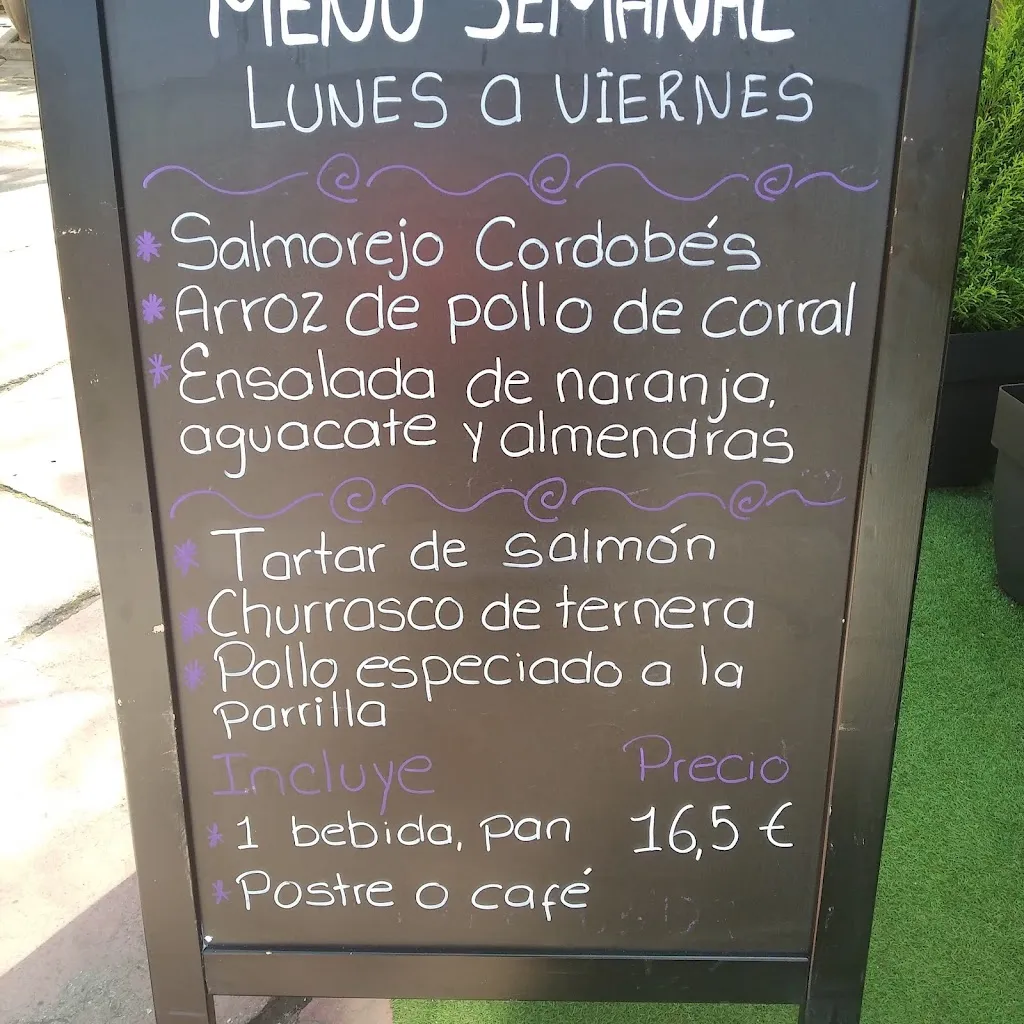 MENÚ SEMANAL
LUNES a VIERNES
* Salmorejo Cordobés
* Arroz de pollo de corral
* Ensalada de naranja,
aguacate y almendras
* Tartar de salmón
* Churrasco de ternera
* Pollo especiado a la
parrilla
Incluye Precio
* 1 bebida, pan 16,5 €
* Postre o café